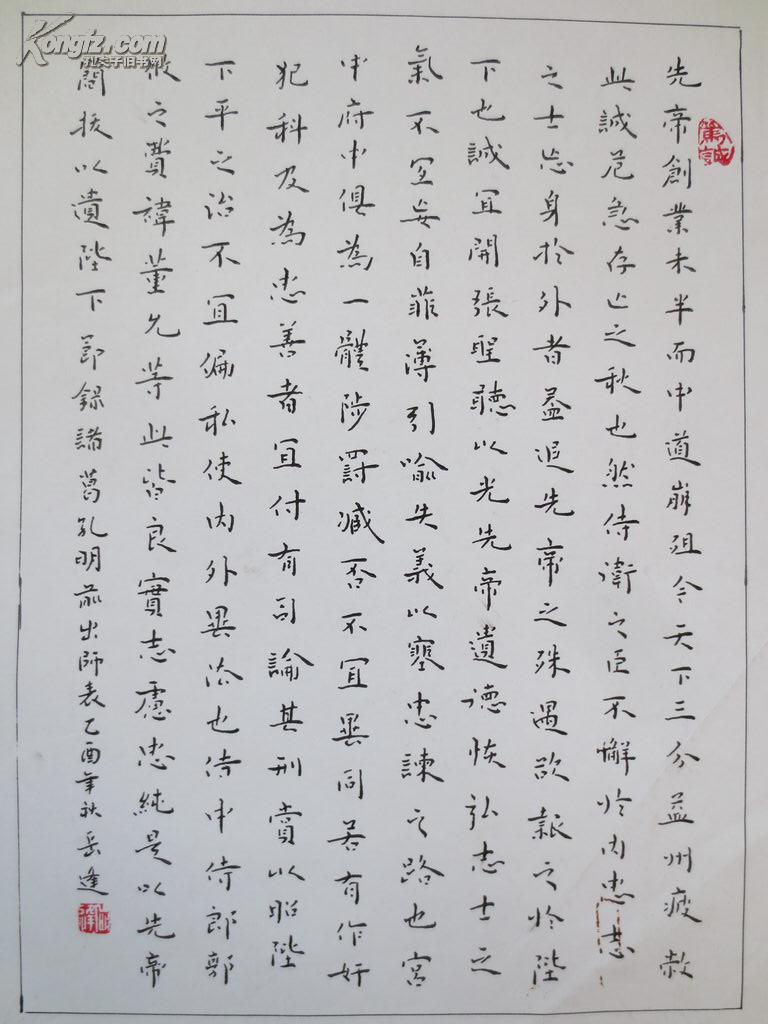 先帝創業未半而中道崩殂今天下三分益州疲敝
此誠危急存亡之秋也然侍衛之臣不懈於內忠志
之士忘身於外者蓋追先帝之殊遇欲報之於陛
下也誠宜開張聖聽以光先帝遺德恢弘志士之
氣不宜妄自菲薄引喻失義以塞忠諫之路也宮
中府中俱為一體陟罰臧否不宜異同若有作奸
犯科及為忠善者宜付有司論其刑賞以昭陛
下平之治不宜偏私使內外異法也侍中侍郎郭
攸之費禕董允等此皆良實志慮忠純是以先帝
簡拔以遺陛下節錄諸葛孔明前出師表乙酉年秋岳逢
Kongfz.com
孔夫子旧书网